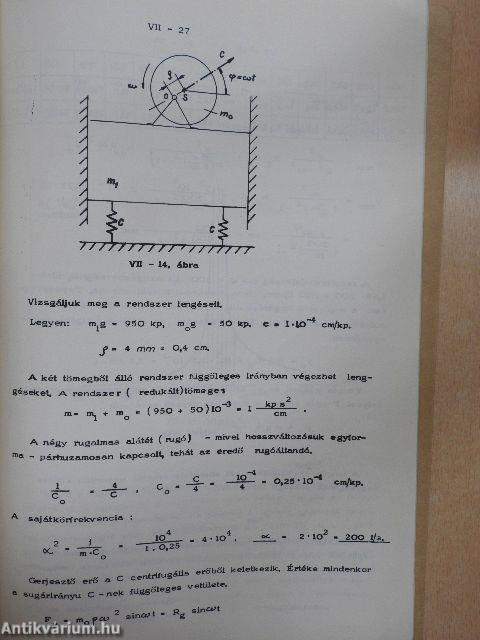 VII - 27
C
φ=ωt
ω
ρ
O
S
m₀
m₁
C
C
VII - 14. ábra
Vizsgáljuk meg a rendszer lengéseit.
Legyen: m₁g = 950 kp, m₀g = 50 kp. c = 1·10⁻⁴ cm/kp.
ρ = 4 mm = 0,4 cm.
A két tömegből álló rendszer függőleges irányban végezhet leng-
géseket. A rendszer ( redukált)tömege:
m= m₁ + m₀ = (950 + 50)10⁻³ = 1 kp s²/cm .
A négy rugalmas alátét ( rugó) - mivel hosszváltozásuk egyfor-
ma - párhuzamosan kapcsolt, tehát az eredő rugóállandó.
1/C₀ = 4/C , C₀ = C/4 = 10⁻⁴/4 = 0,25·10⁻⁴ cm/kp.
A sajátkörfrekvencia :
α² = 1/m·C₀ = 10⁴/1.0,25 = 4·10⁴, α = 2·10² = 200 1/s.
Gerjesztő erő a C centrifugális erőből keletkezik. Értéke mindenkor
a sugárirányu C -nek függőleges vetülete.
= m₀ρω² sinωt = Rg sinωt
Antikvárium.hu